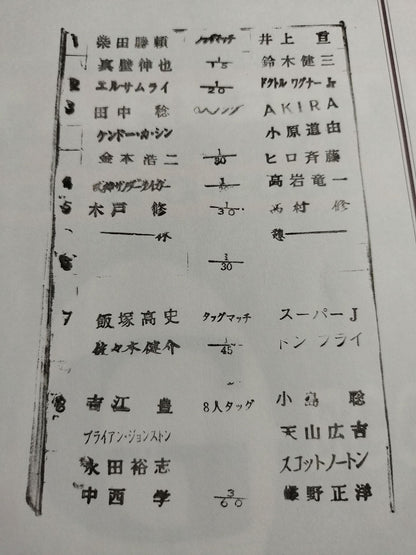 1 柴田勝頼 タッグマッチ 井上亘
真壁伸也 1/15 鈴木健三
2 エルサムライ 1/20 ドクトルワグナーJr
3 田中稔 AKIRA
ケンドー・カ・シン 小原道由
金本浩二 1/30 ヒロ斉藤
4 高岩竜一
5 木戸修 1/30 西村修
休 憩
6 1/30
7 飯塚高史 タッグマッチ スーパーJ
佐々木健介 1/45 ドンフライ
8 吉江豊 8人タッグ 小島聡
ブライアン・ジョンストン 天山広吉
永田裕志 スコットノートン
中西学 3/60 蝶野正洋